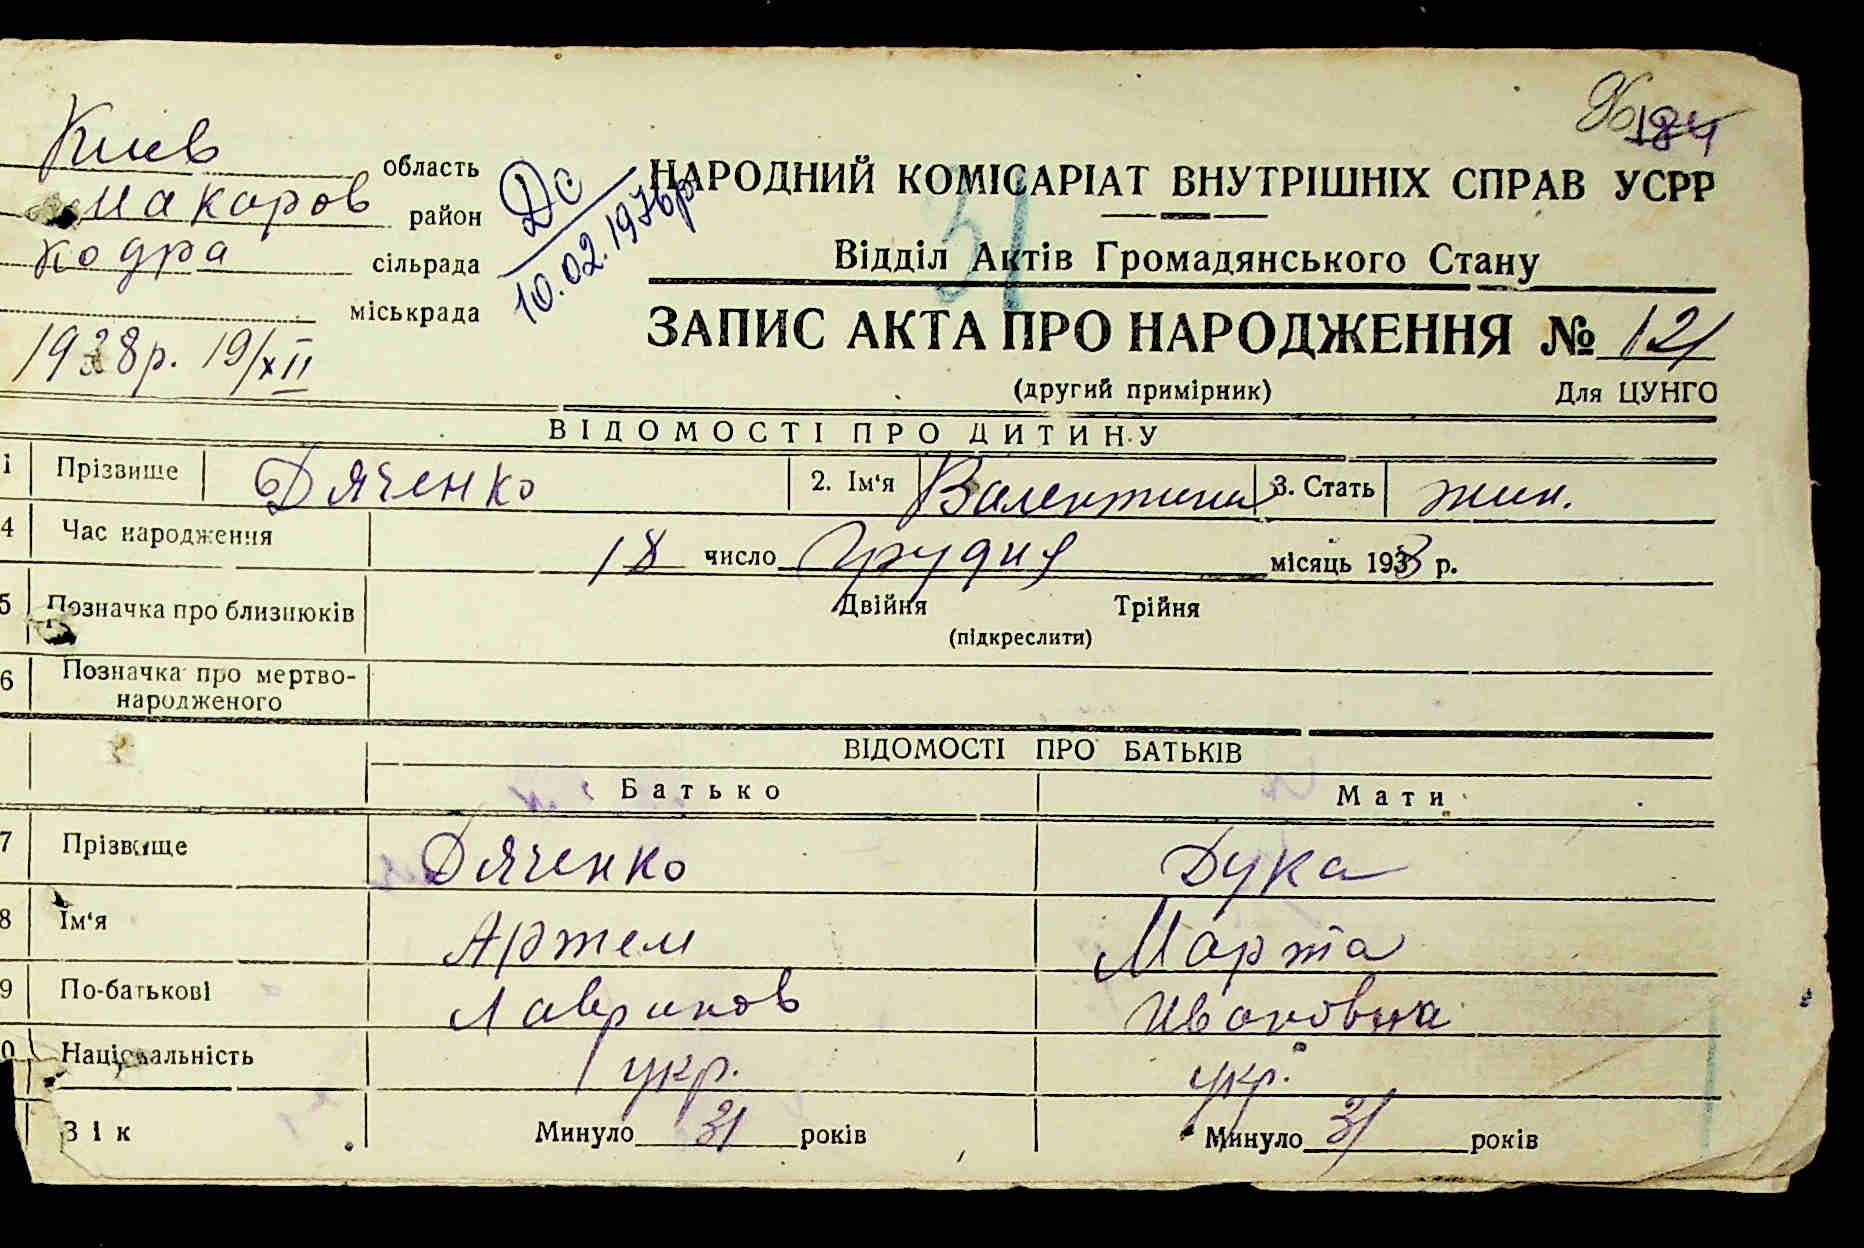 Киев область
Макаров район
Кодра сільрада
міськрада
1938 р. 19/XII
Дс
10.02.1976р.
184
НАРОДНИЙ КОМІСАРІАТ ВНУТРІШНІХ СПРАВ УСРР
31
Відділ Актів Громадянського Стану
ЗАПИС АКТА ПРО НАРОДЖЕННЯ № 121
(другий примірник) Для ЦУНГО
ВІДОМОСТІ ПРО ДИТИНУ
1 Прізвище Дяченко 2. Ім'я Валентина 3. Стать жін.
4 Час народження 18 число Грудня місяць 1938 р.
5 Позначка про близнюків Двійня Трійня
(підкреслити)
6 Позначка про мертво-
народженого
ВІДОМОСТІ ПРО БАТЬКІВ
Батько Мати
7 Прізвище Дяченко Дука
8 Ім'я Артем Марта
9 По-батькові Лавринов Ивановна
0 Національність укр. укр.
Вік Минуло 31 років Минуло 31 років